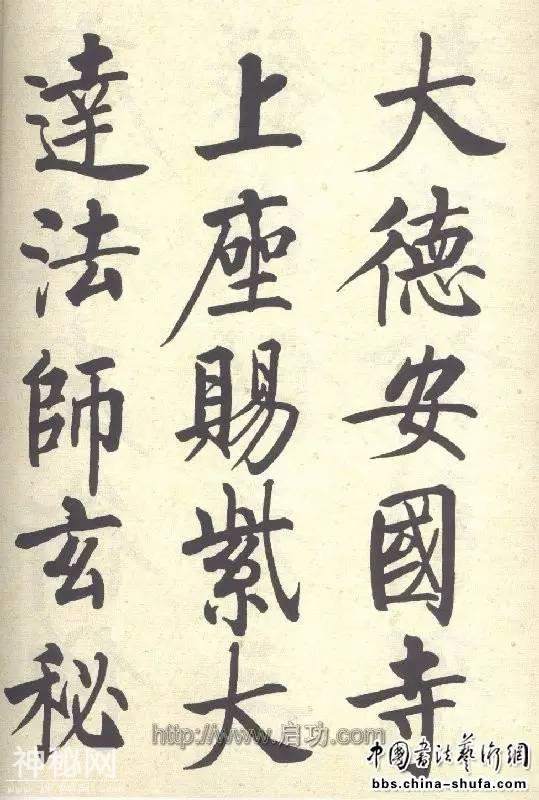 大德安國寺
上座賜紫大
達法師玄秘
http://www.启功.com
神秘网
中国書法藝術網
bbs.china-shufa.com